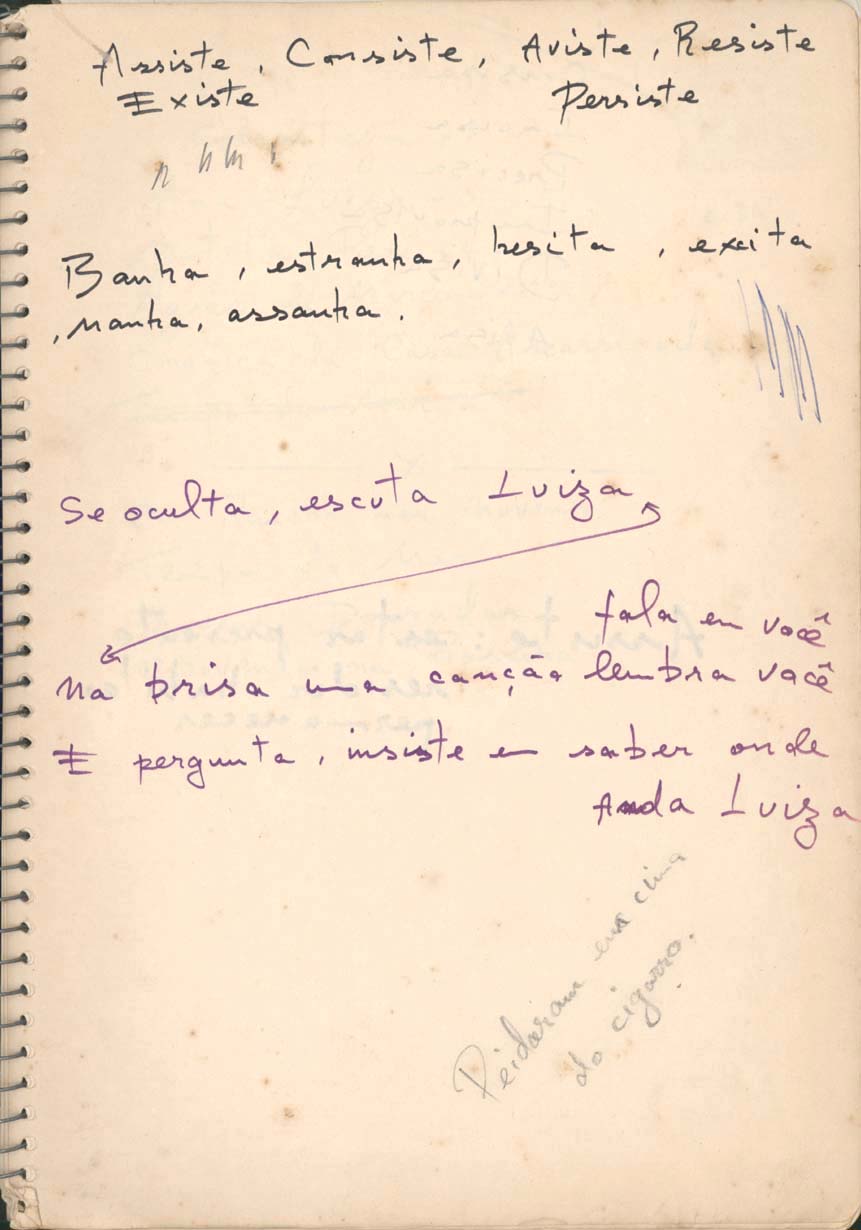 Assiste, Consiste, Aviste, Resiste
Existe Persiste
Banha, estranha, hesita, excita
, manha, assanha.
Se oculta, escuta Luiza
fala em você
Na brisa uma canção lembra você
E pergunta, insiste em saber onde
Anda Luiza
Peidaram em cima
do cigarro.